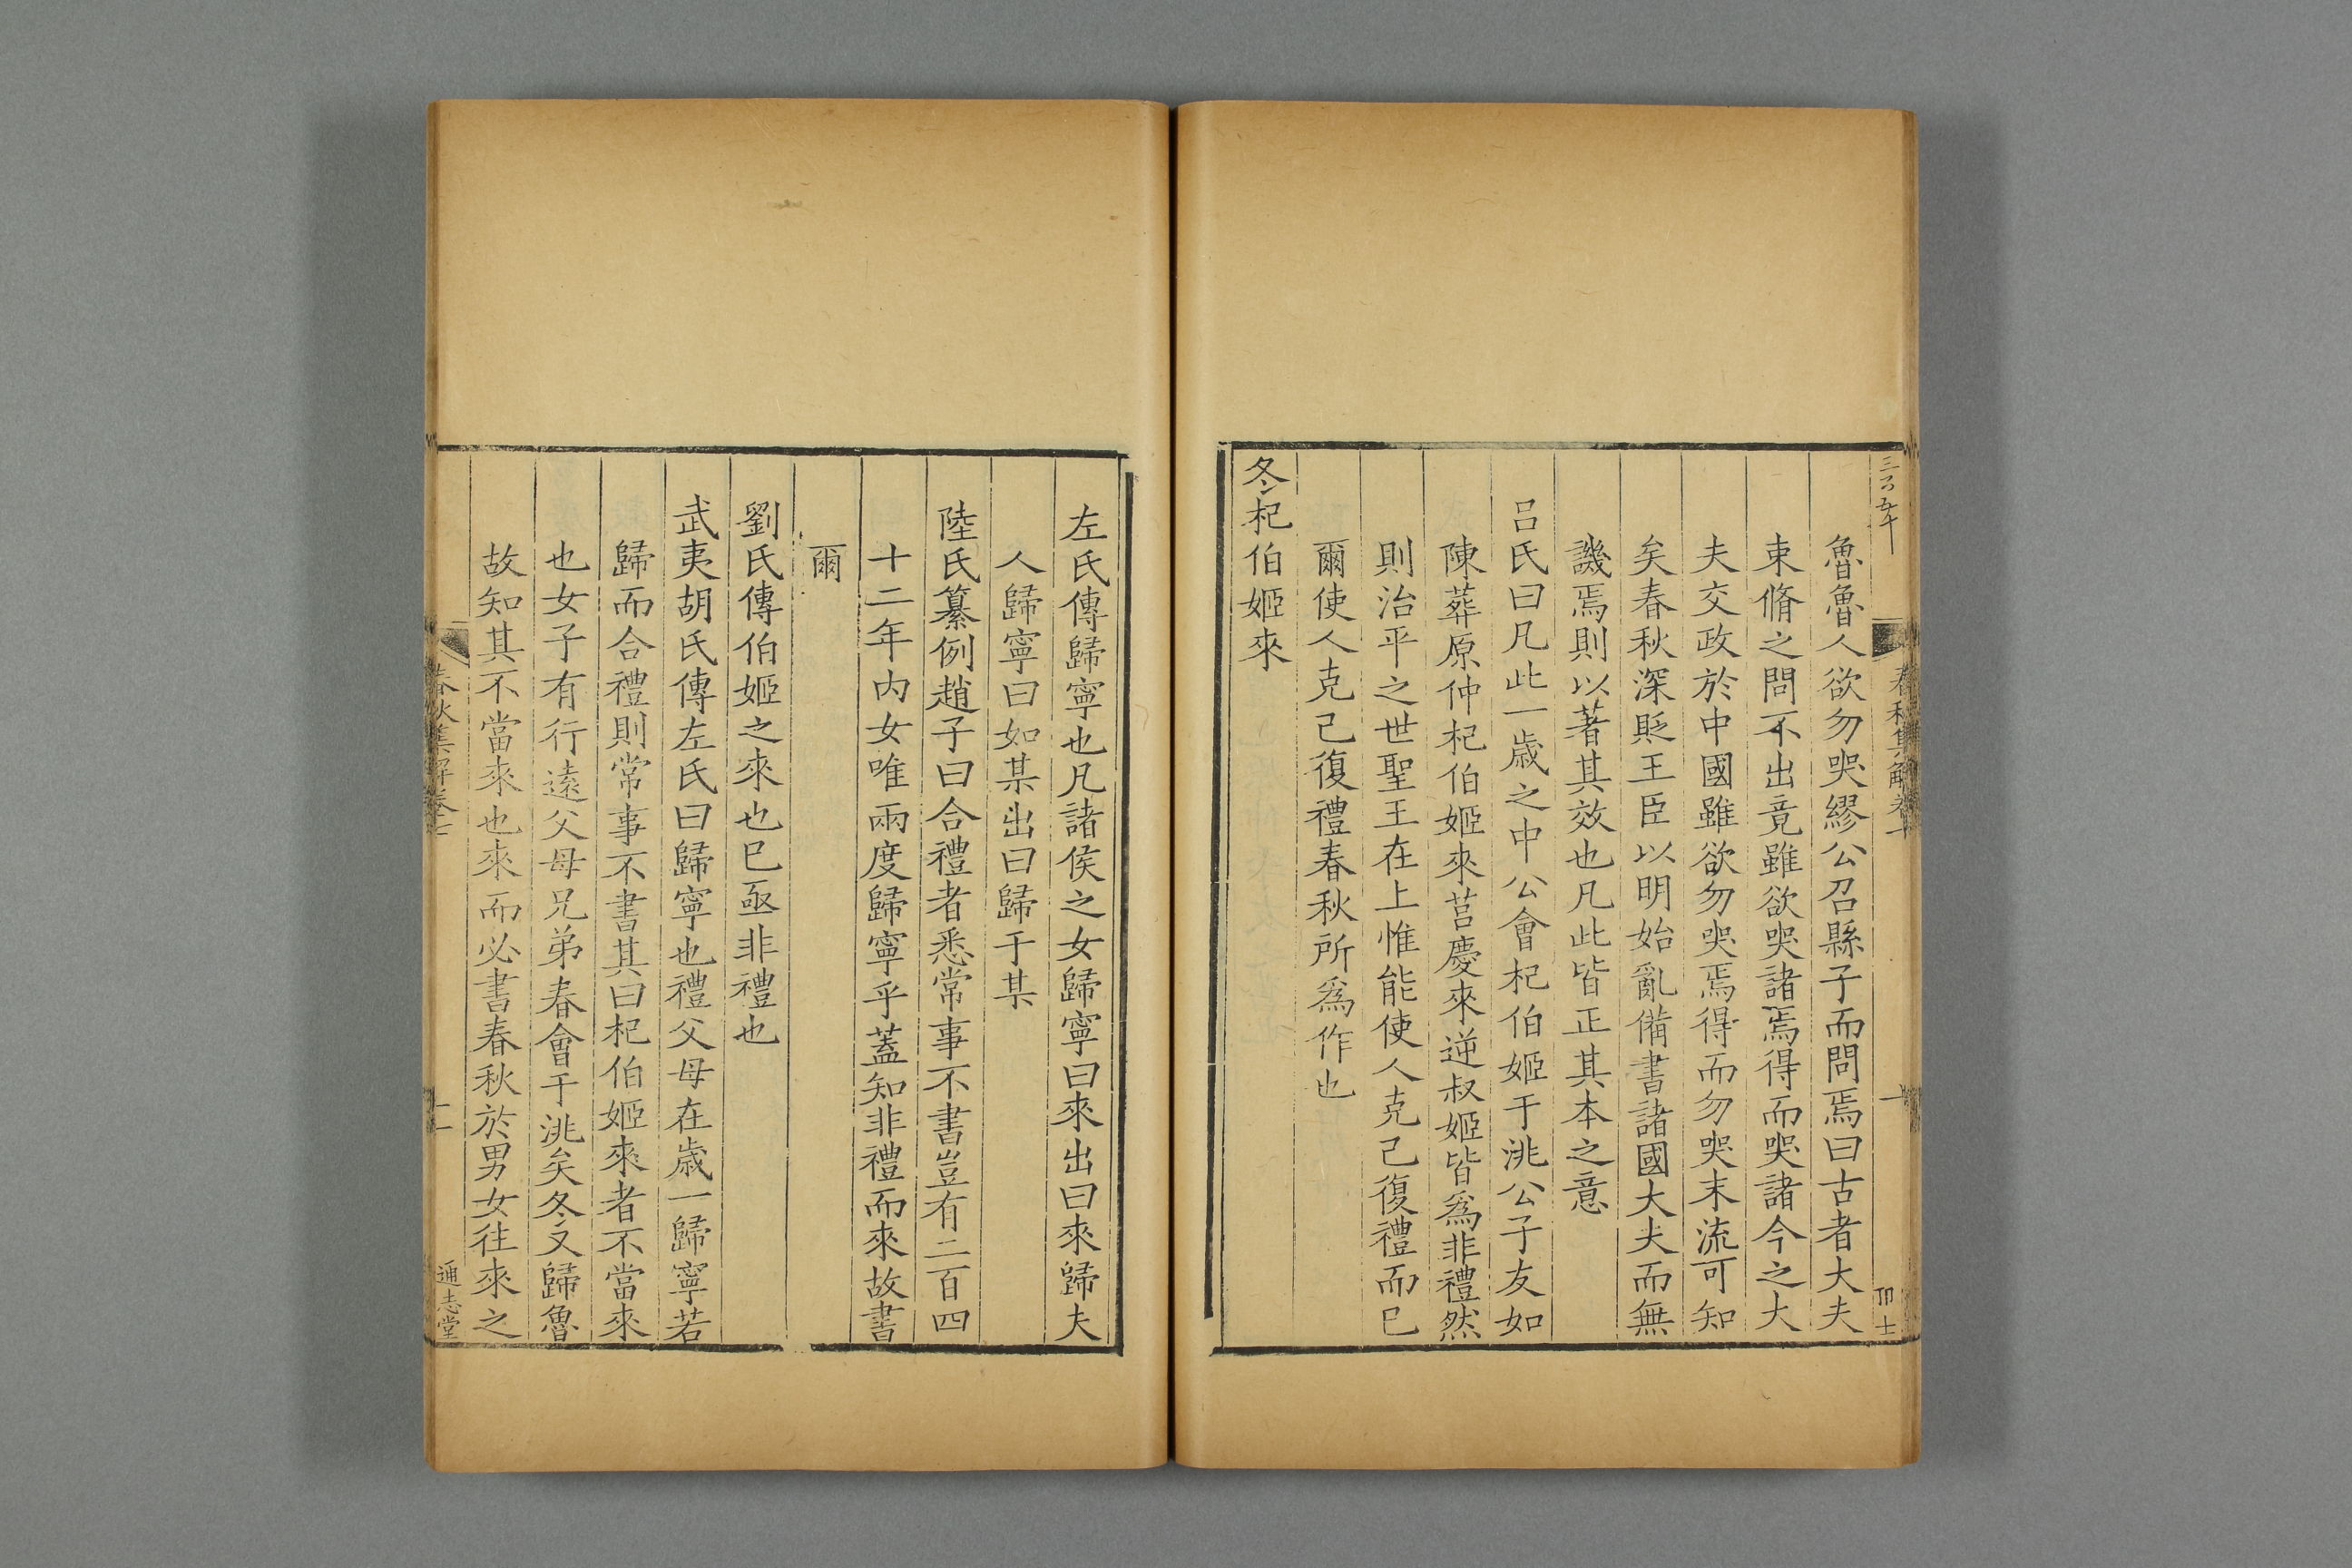 魯魯人欲勿哭繆公召縣子而問焉曰古者大夫
束脩之問不出竟雖欲哭諸焉得而哭諸今之大
夫交政於中國雖欲勿哭焉得而勿哭末流可知
矣春秋深貶王臣以明始亂備書諸國大夫而無
譏焉則以著其效也凡此皆正其本之意
呂氏曰凡此一歲之中公會杞伯姬于洮公子友如
陳葬原仲杞伯姬來莒慶來逆叔姬皆爲非禮然
則治平之世聖王在上惟能使人克己復禮而已
爾使人克己復禮春秋所爲作也
冬杞伯姬來
左氏傳歸寧也凡諸侯之女歸寧曰來出曰來歸夫
人歸寧曰如某出曰歸于某
陸氏纂例趙子曰合禮者悉常事不書豈有二百四
十二年內女唯兩度歸寧乎蓋知非禮而來故書
爾
劉氏傳伯姬之來也巳亟非禮也
武夷胡氏傳左氏曰歸寧也禮父母在歲一歸寧若
歸而合禮則常事不書其曰杞伯姬來者不當來
也女子有行遠父母兄弟春會于洮矣冬又歸魯
故知其不當來也來而必書春秋於男女往來之
春秋集解卷七
通志堂